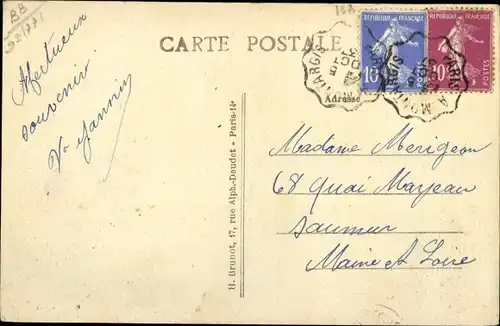 BB
CARTE POSTALE
RÉPUBLIQUE FRANÇAISE
10
RÉPUBLIQUE FRANÇAISE
20
Adresse
Affectueux
souvenir
H. Brunot, 17, rue Alph.-Daudet - Paris-14e
Madame Merigeon
68 Quai Mayeau
Saumur
Maine et Loire